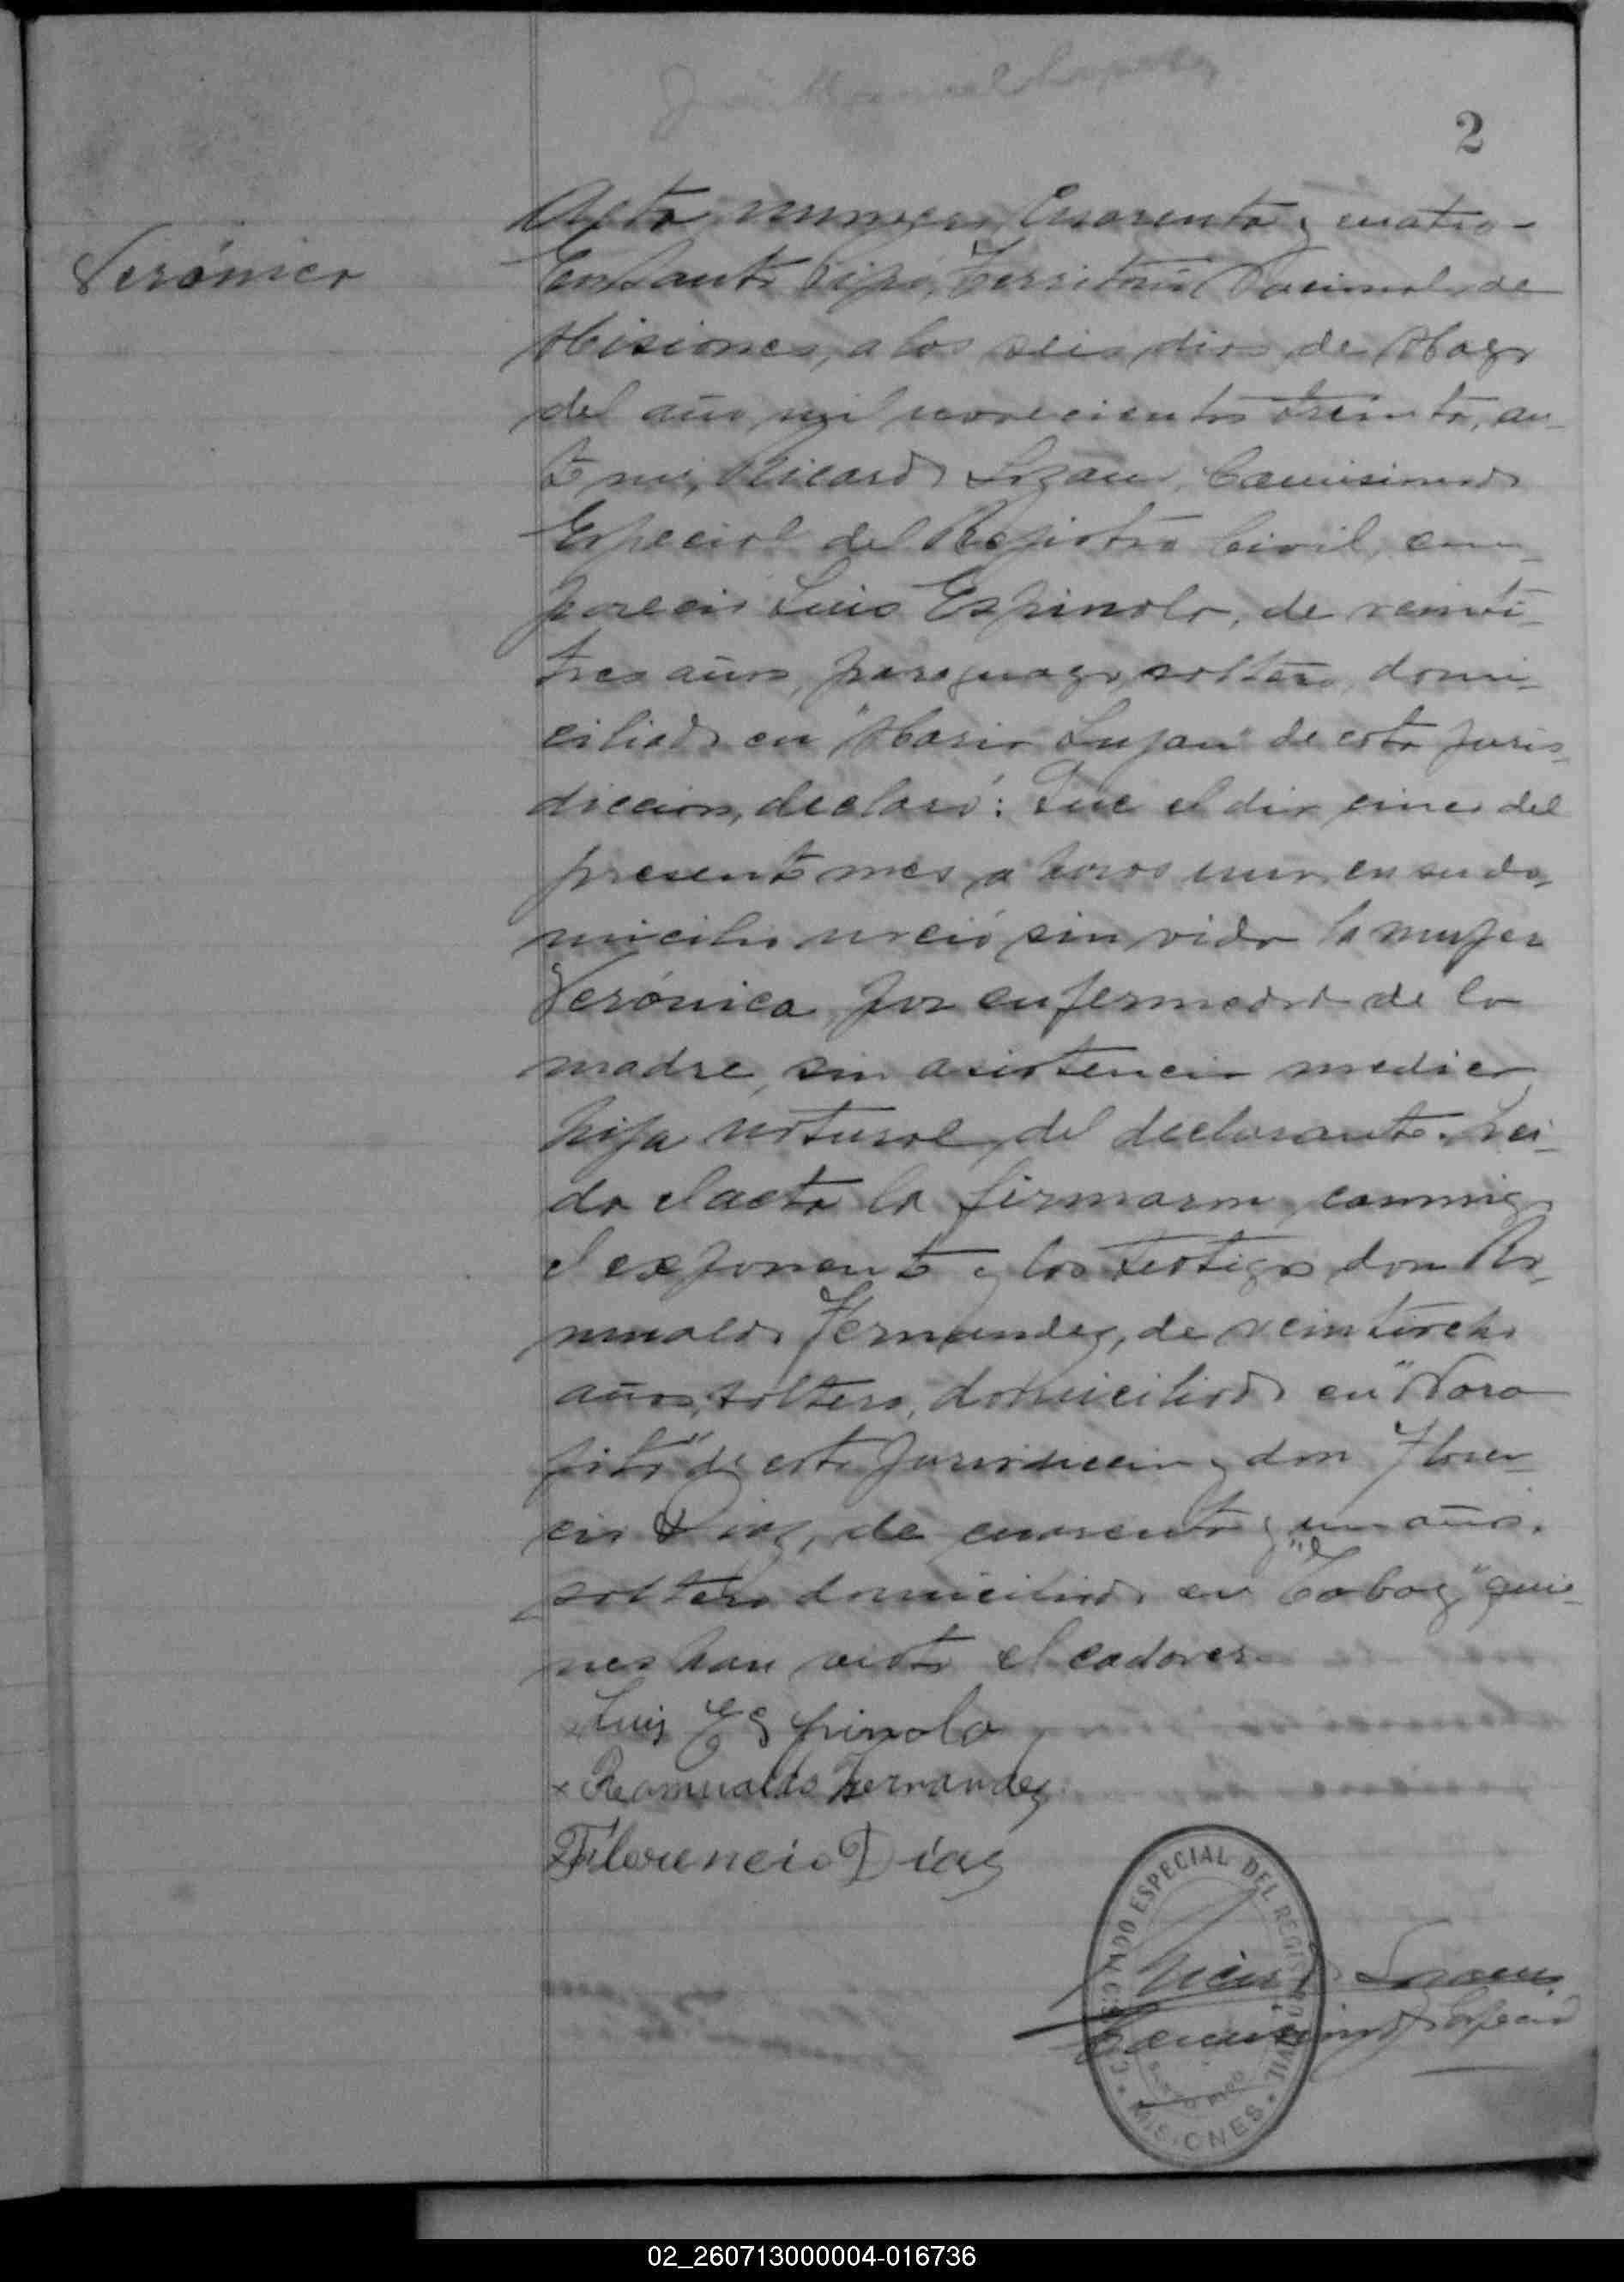 2
Verónica
Acta numero Cuarenta y cuatro-
En Santo Pipó, Territorio Nacional de
Misiones, a los seis dias de Mayo
del año mil novecientos treinta, an-
te mi, Ricardo Lozano, Comisionado
Especial del Registro Civil, com-
pareció Luis Espinola, de veinti-
tres años, paraguayo, soltero, domi-
ciliado en "Maria Lujan" de esta juris-
diccion, declaró: Que el dia cinco del
presente mes a horas una, en su do-
micilio nació sin vida la mujer
Verónica por enfermedad de la
madre, sin asistencia medica
hija natural del declarante. Lei-
da el acta la firmaron conmigo
el exponente y los testigos don Ro-
mualdo Fernandez, de veintiocho
años, soltero, domiciliado en "Ñara
pitá" de esta jurisdiccion y don Floren-
cio Diaz, de cuarenta y un años,
soltero domiciliado en "Tabay" quie-
nes han visto el cadaver.
Luis Espinola
x Romualdo Fernandez
Florencio Díaz
Ricardo Lozano
Comisionado Especial
COMISIONADO ESPECIAL DEL REGISTRO CIVIL
SANTO PIPÓ
MISIONES
02_260713000004-016736